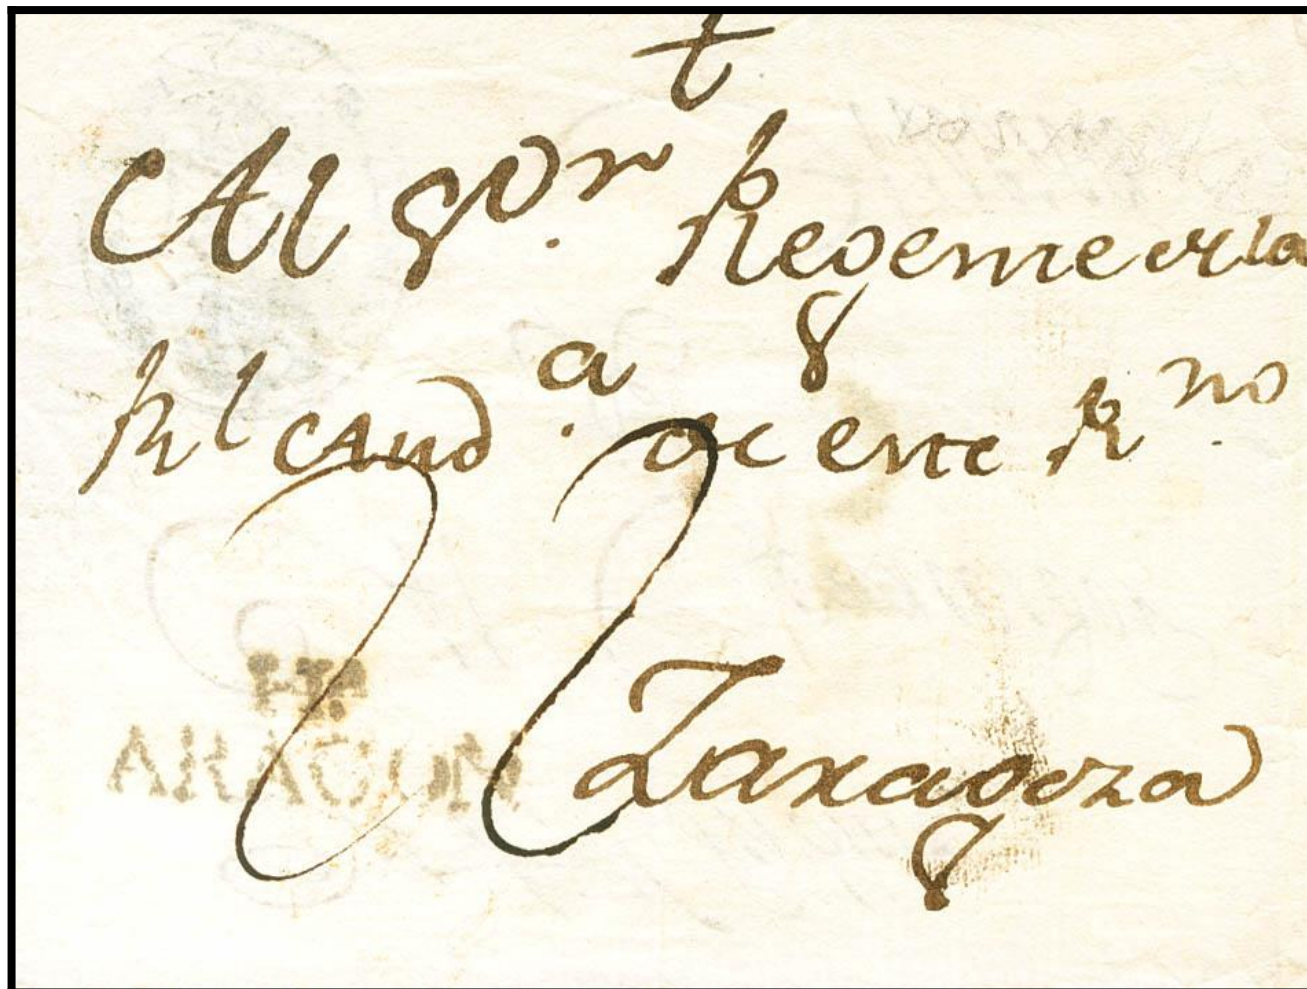 t
Al Sor. Regente de la
Rl Aud.a de este R.no
Zaragoza
ARAGON